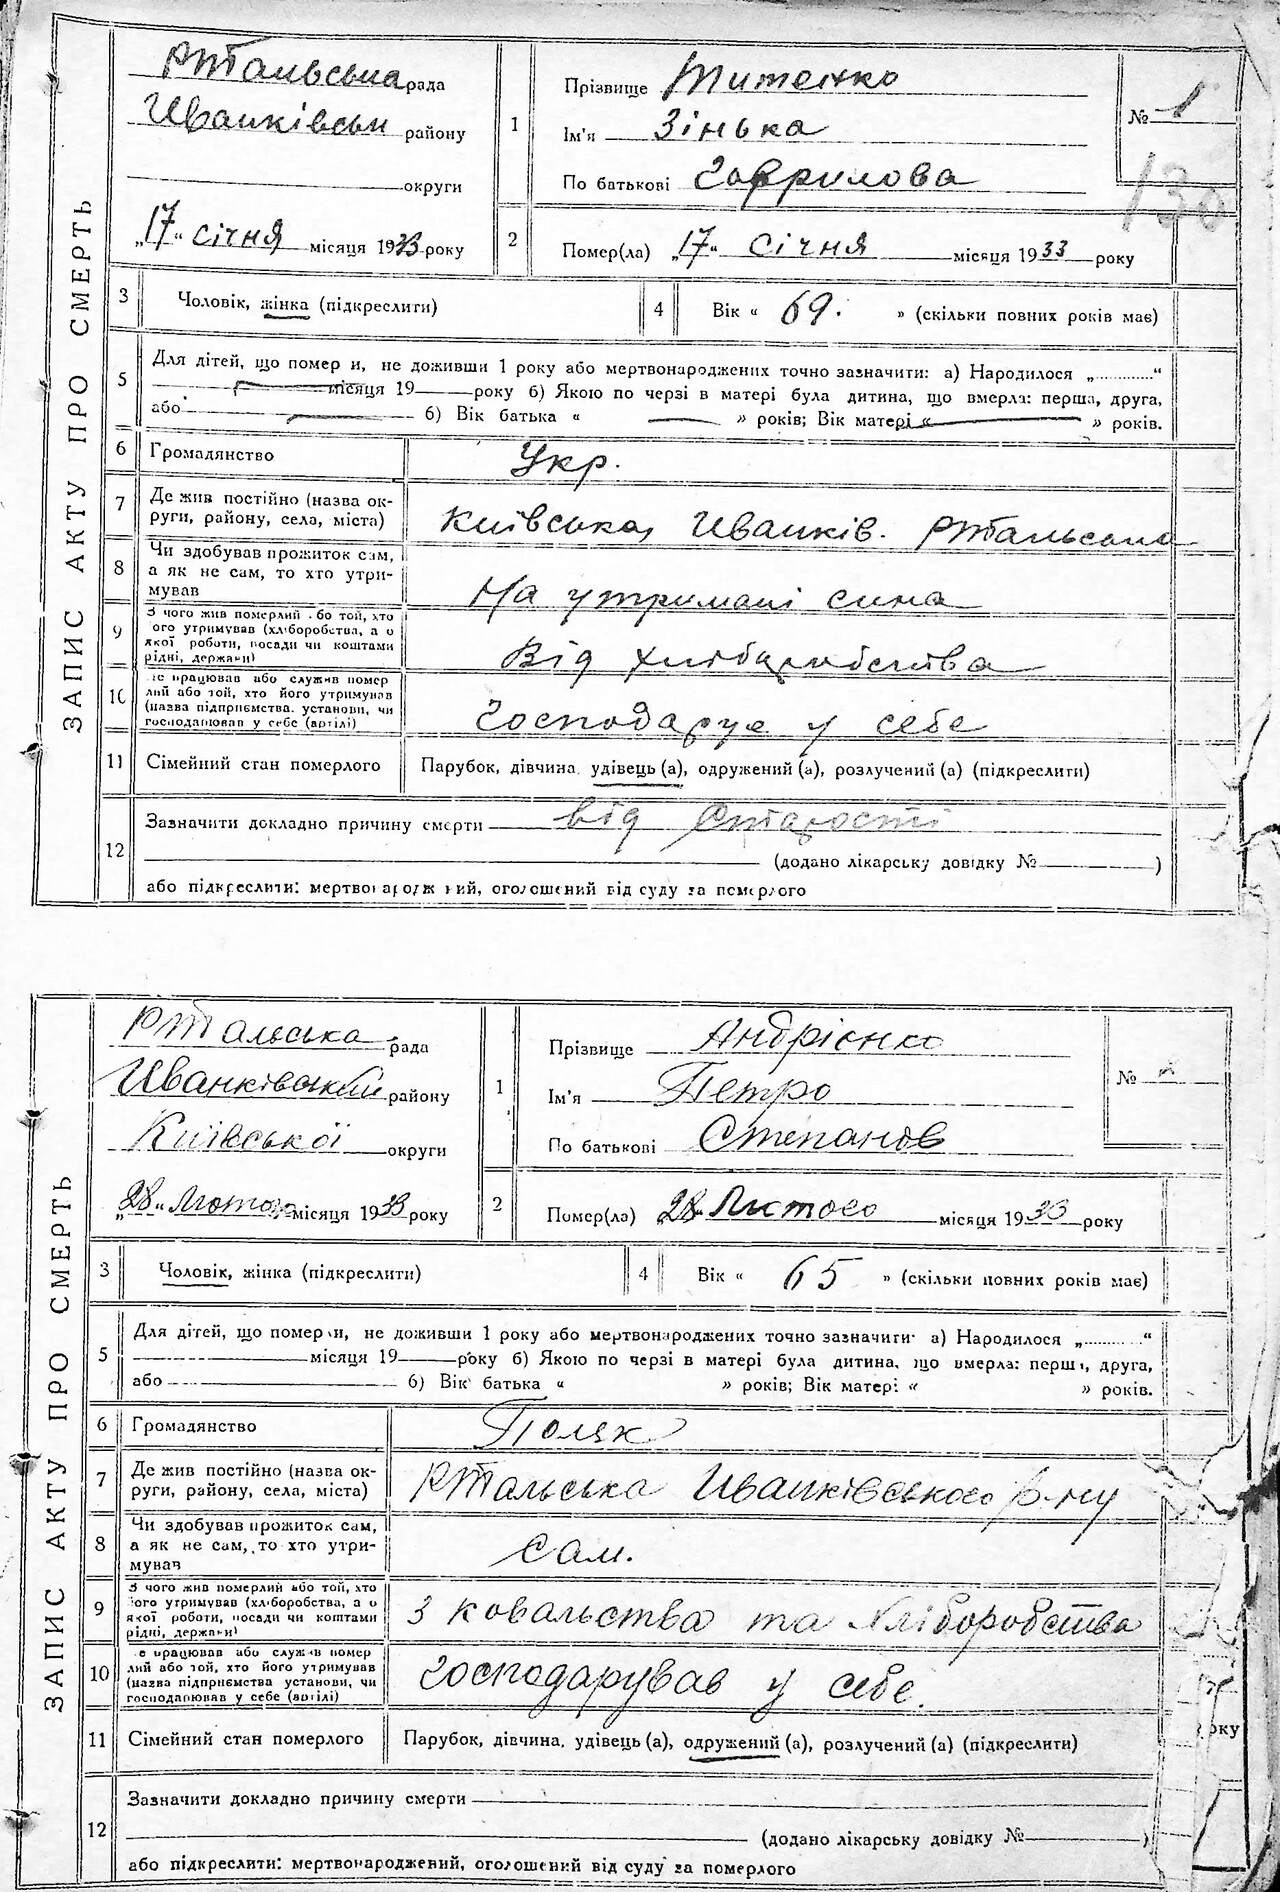 ЗАПИС АКТУ ПРО СМЕРТЬ
Ртальська рада
Иванківськ району
округи
„17“ січня місяця 1933 року
1
Прізвище Титенко
Ім'я Зінька
По батькові Гаврилова
№ 1
130
2
Помер(ла) „17“ січня місяця 1933 року
3
Чоловік, жінка (підкреслити)
4
Вік « 69. » (скільки повних років має)
5
Для дітей, що помер и, не доживши 1 року або мертвонароджених точно зазначити: а) Народилося „............“
місяця 19 року б) Якою по черзі в матері була дитина, що вмерла: перша, друга,
або 6) Вік батька « » років; Вік матері « » років.
6
Громадянство
Укр.
7
Де жив постійно (назва ок-
руги, району, села, міста)
Київська, Иванків. Ртальська
8
Чи здобував прожиток сам,
а як не сам, то хто утри-
мував
На утримані сина
9
З чого жив померлий бо той, хто
ого утримував (хліборобства, а о
якої роботи, посади чи коштами
рідні, держави)
Від хліборобства
10
е працював або служив помер
лий або той, хто його утримував
(назва підприємства, установи, чи
господарював у себе (артілі)
Господарує у себе
11
Сімейний стан померлого
Парубок, дівчина, удівець (а), одружений (а), розлучений (а) (підкреслити)
12
Зазначити докладно причину смерти від старості
(додано лікарську довідку № )
або підкреслити: мертвонароджений, оголошений від суду за померлого
ЗАПИС АКТУ ПРО СМЕРТЬ
Ртальська рада
Иванківський району
Київської округи
„28“ Лютого місяця 1933 року
1
Прізвище Андрієнко
Ім'я Петро
По батькові Степанов
№ 2
2
Помер(ла) „28“ Лютого місяця 1933 року
3
Чоловік, жінка (підкреслити)
4
Вік « 65 » (скільки повних років має)
5
Для дітей, що помер и, не доживши 1 року або мертвонароджених точно зазначити: а) Народилося „............“
місяця 19 року б) Якою по черзі в матері була дитина, що вмерла: перша, друга,
або 6) Вік батька « » років; Вік матері « » років.
6
Громадянство
Поляк
7
Де жив постійно (назва ок-
руги, району, села, міста)
Ртальська Иванківського р-ну
8
Чи здобував прожиток сам,
а як не сам, то хто утри-
мував
Сам.
9
З чого жив померлий або той, хто
його утримував (хліборобства, а о
якої роботи, посади чи коштами
рідні, держави)
З ковальства та хліборобства
10
е працював або служив помер
лий або той, хто його утримував
(назва підприємства установи, чи
господарював у себе (артілі)
Господарував у себе.
11
Сімейний стан померлого
Парубок, дівчина, удівець (а), одружений (а), розлучений (а) (підкреслити)
року
12
Зазначити докладно причину смерти
(додано лікарську довідку № )
або підкреслити: мертвонароджений, оголошений від суду за померлого